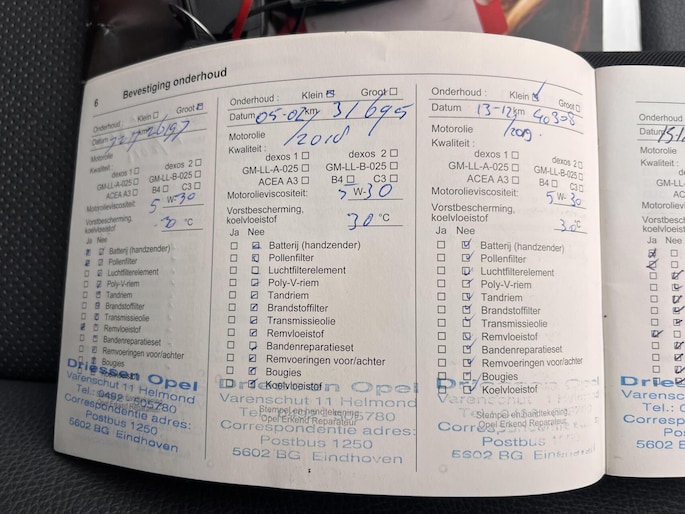 6 Bevestiging onderhoud
Onderhoud : Klein Groot
Datum
Motorolie
Kwaliteit :
dexos 1 dexos 2
GM-LL-A-025 GM-LL-B-025
ACEA A3 B4 C3
Motorolieviscositeit: 5 W-30
Vorstbescherming,
koelvloeistof -30 °C
Ja Nee
Batterij (handzender)
Pollenfilter
Luchtfilterelement
Poly-V-riem
Tandriem
Brandstoffilter
Transmissieolie
Remvloeistof
Bandenreparatieset
Remvoeringen voor/achter
Bougies
Driessen Opel
Varenschut 11 Helmond
Tel.: 0492 - 505780
Correspondentie adres:
Postbus 1250
5602 BG Eindhoven
Onderhoud : Klein Groot
Datum 05-02 km 31695
Motorolie 2018
Kwaliteit :
dexos 1 dexos 2
GM-LL-A-025 GM-LL-B-025
ACEA A3 B4 C3
Motorolieviscositeit: 5 W-30
Vorstbescherming,
koelvloeistof 30 °C
Ja Nee
Batterij (handzender)
Pollenfilter
Luchtfilterelement
Poly-V-riem
Tandriem
Brandstoffilter
Transmissieolie
Remvloeistof
Bandenreparatieset
Remvoeringen voor/achter
Bougies
Koelvloeistof
Driessen Opel
Varenschut 11 Helmond
Stempel en handtekening,
Opel Erkend Reparateur
Correspondentie adres:
Postbus 1250
5602 BG Eindhoven
Onderhoud : Klein Groot
Datum 13-12 km 40308
Motorolie 2019
Kwaliteit :
dexos 1 dexos 2
GM-LL-A-025 GM-LL-B-025
ACEA A3 B4 C3
Motorolieviscositeit: 5 W-30
Vorstbescherming,
koelvloeistof 30°C
Ja Nee
Batterij (handzender)
Pollenfilter
Luchtfilterelement
Poly-V-riem
Tandriem
Brandstoffilter
Transmissieolie
Remvloeistof
Bandenreparatieset
Remvoeringen voor/achter
Bougies
Koelvloeistof
Stempel en handtekening,
Opel Erkend Reparateur
Postbus
5602 BG
Onderhoud :
Datum
Motorolie
Kwaliteit :